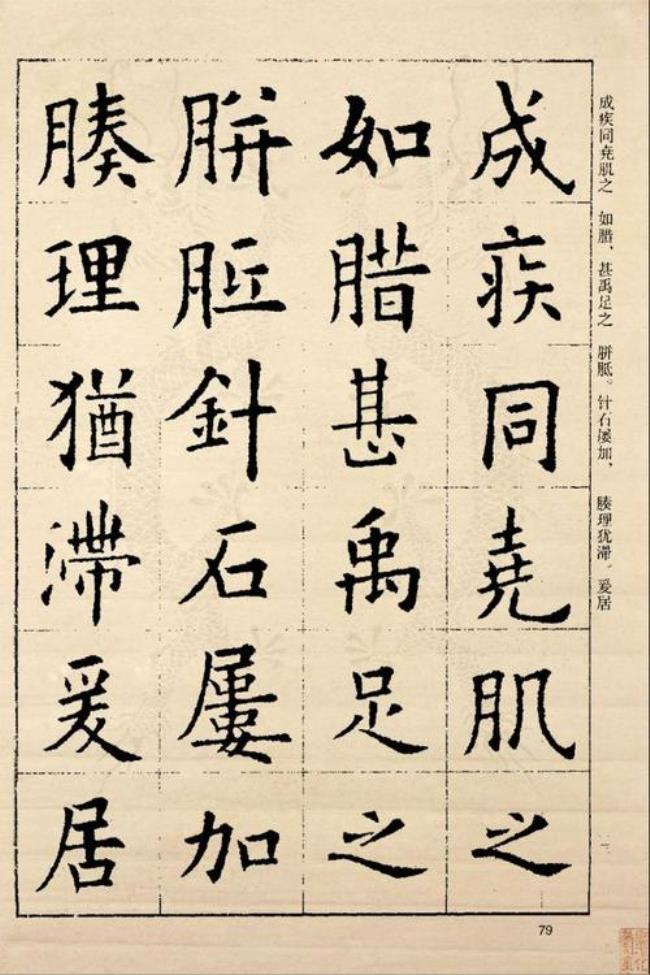 成疾同堯肌之
如腊甚禹足之
胼胝針石屢加
腠理猶滯爰居
成疾同尧肌之 如腊、甚禹足之 胼胝。针石屡加， 腠理犹滞。爰居
79